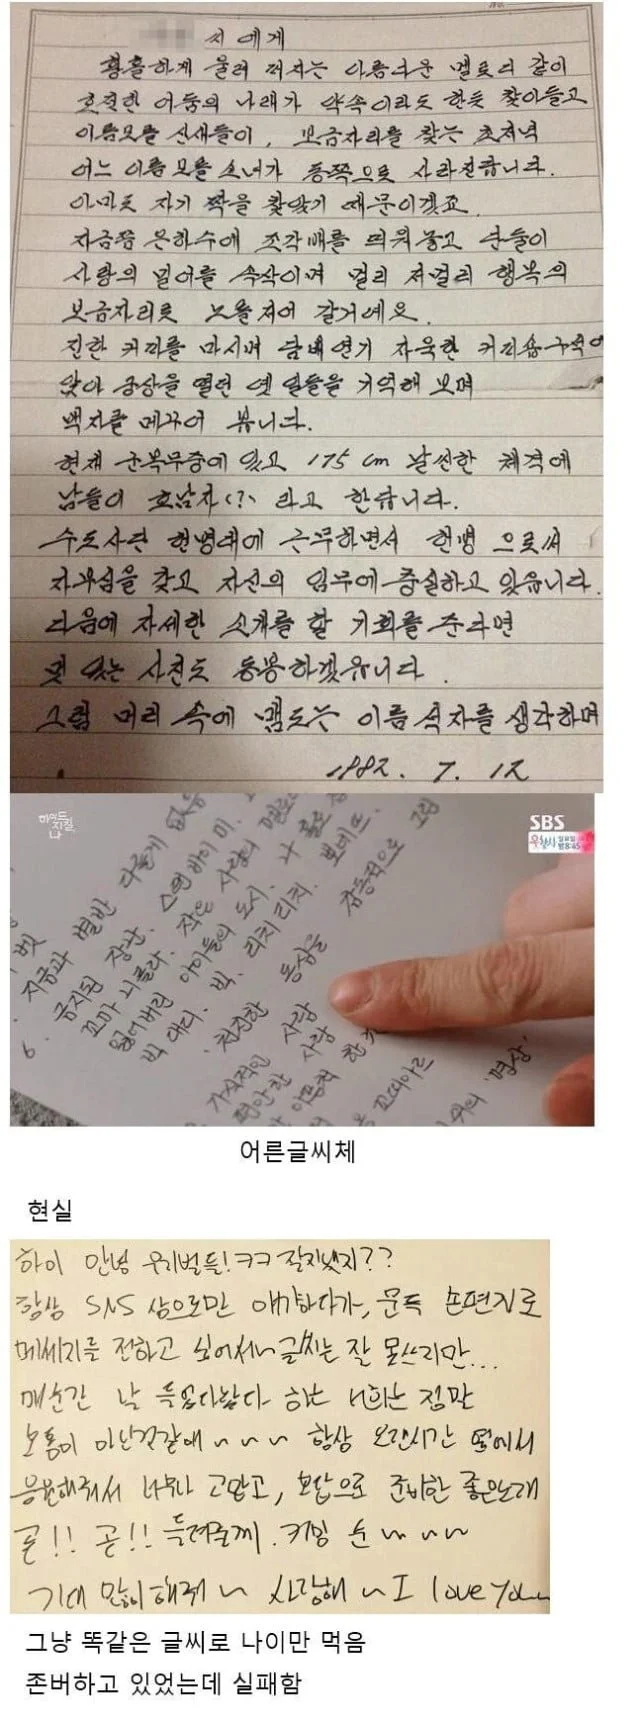 씨 에게
황홀하게 울려 퍼지는 아름다운 멜로디 같이
호젓한 어둠의 나래가 약속이라도 한듯 찾아들고
이름모를 산새들이, 보금자리를 찾는 초저녁
어느 이름 모를 소녀가 동쪽으로 사라진답니다.
아마도 자기 짝을 찾았기 때문이겠죠.
지금쯤 은하수에 조각배를 띄워놓고 단둘이
사랑의 밀어를 속삭이며 멀리 저멀리 행복의
보금자리로 노를저어 갈거예요.
진한 커피를 마시며 담배연기 자욱한 커피숍구석에
앉아 공상을 떨던 옛 일들을 기억해 보며
백지를 메꾸어 봅니다.
현재 군복무중에 있고 175cm 날씬한 체격에
남들이 호남자(?) 라고 한답니다.
수도사단 헌병대에 근무하면서 헌병 으로써
자부심을 갖고 자신의 임무에 충실하고 있읍니다.
다음에 자세한 소개를 할 기회를 준다면
멋 있는 사진도 동봉하겠읍니다.
그럼 머리 속에 맴도는 이름 석자를 생각하며
1982. 7. 12
하이드 지킬, 나
SBS
지금과 별반 다를게 없음
6. 금지된 장난.
꼬마 니콜라. 작은 사랑의 멜로디
잃어버린 아이들의 도시. 나 홀로
빅 대디. 빅. 리치리치. 보네뜨.
천진한 동심을 감동적으로 그린
가식적인 사랑
편안한 사랑
꼬띠아르
'명상'
어른글씨체
현실
하이 안녕 우리벌들!ㅋㅋ 잘지냈지??
항상 SNS 상으로만 얘기하다가, 문득 손편지로
메세지를 전하고 싶어서~글씨는 잘 못쓰지만...
매순간 날 들었다놨다 하는 너희는 정말
보통이 아닌것같애~~~ 항상 오랜시간 옆에서
응원해줘서 너무나 고맙고, 보답으로 준비한 좋은노래
곧!! 곧!! 들려줄께. 커밍 순~~~
기대 많이해줘~ 사랑해~I love you~
그냥 똑같은 글씨로 나이만 먹음
존버하고 있었는데 실패함